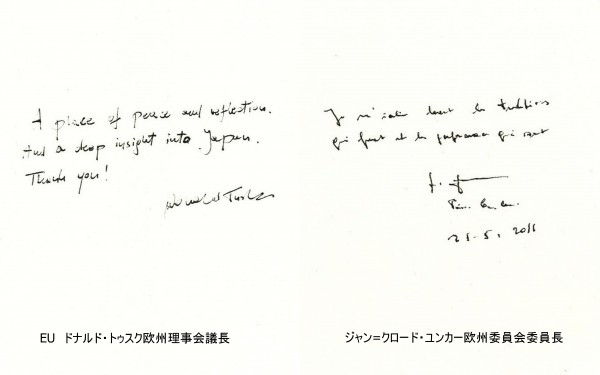 A place of peace and reflection.
And a deep insight into Japan.
Thank you!
Donald Tusk
Je m'incline devant les traditions
qui font et les
qui sont
EU ドナルド・トゥスク欧州理事会議長
ジャン=クロード・ユンカー欧州委員会委員長